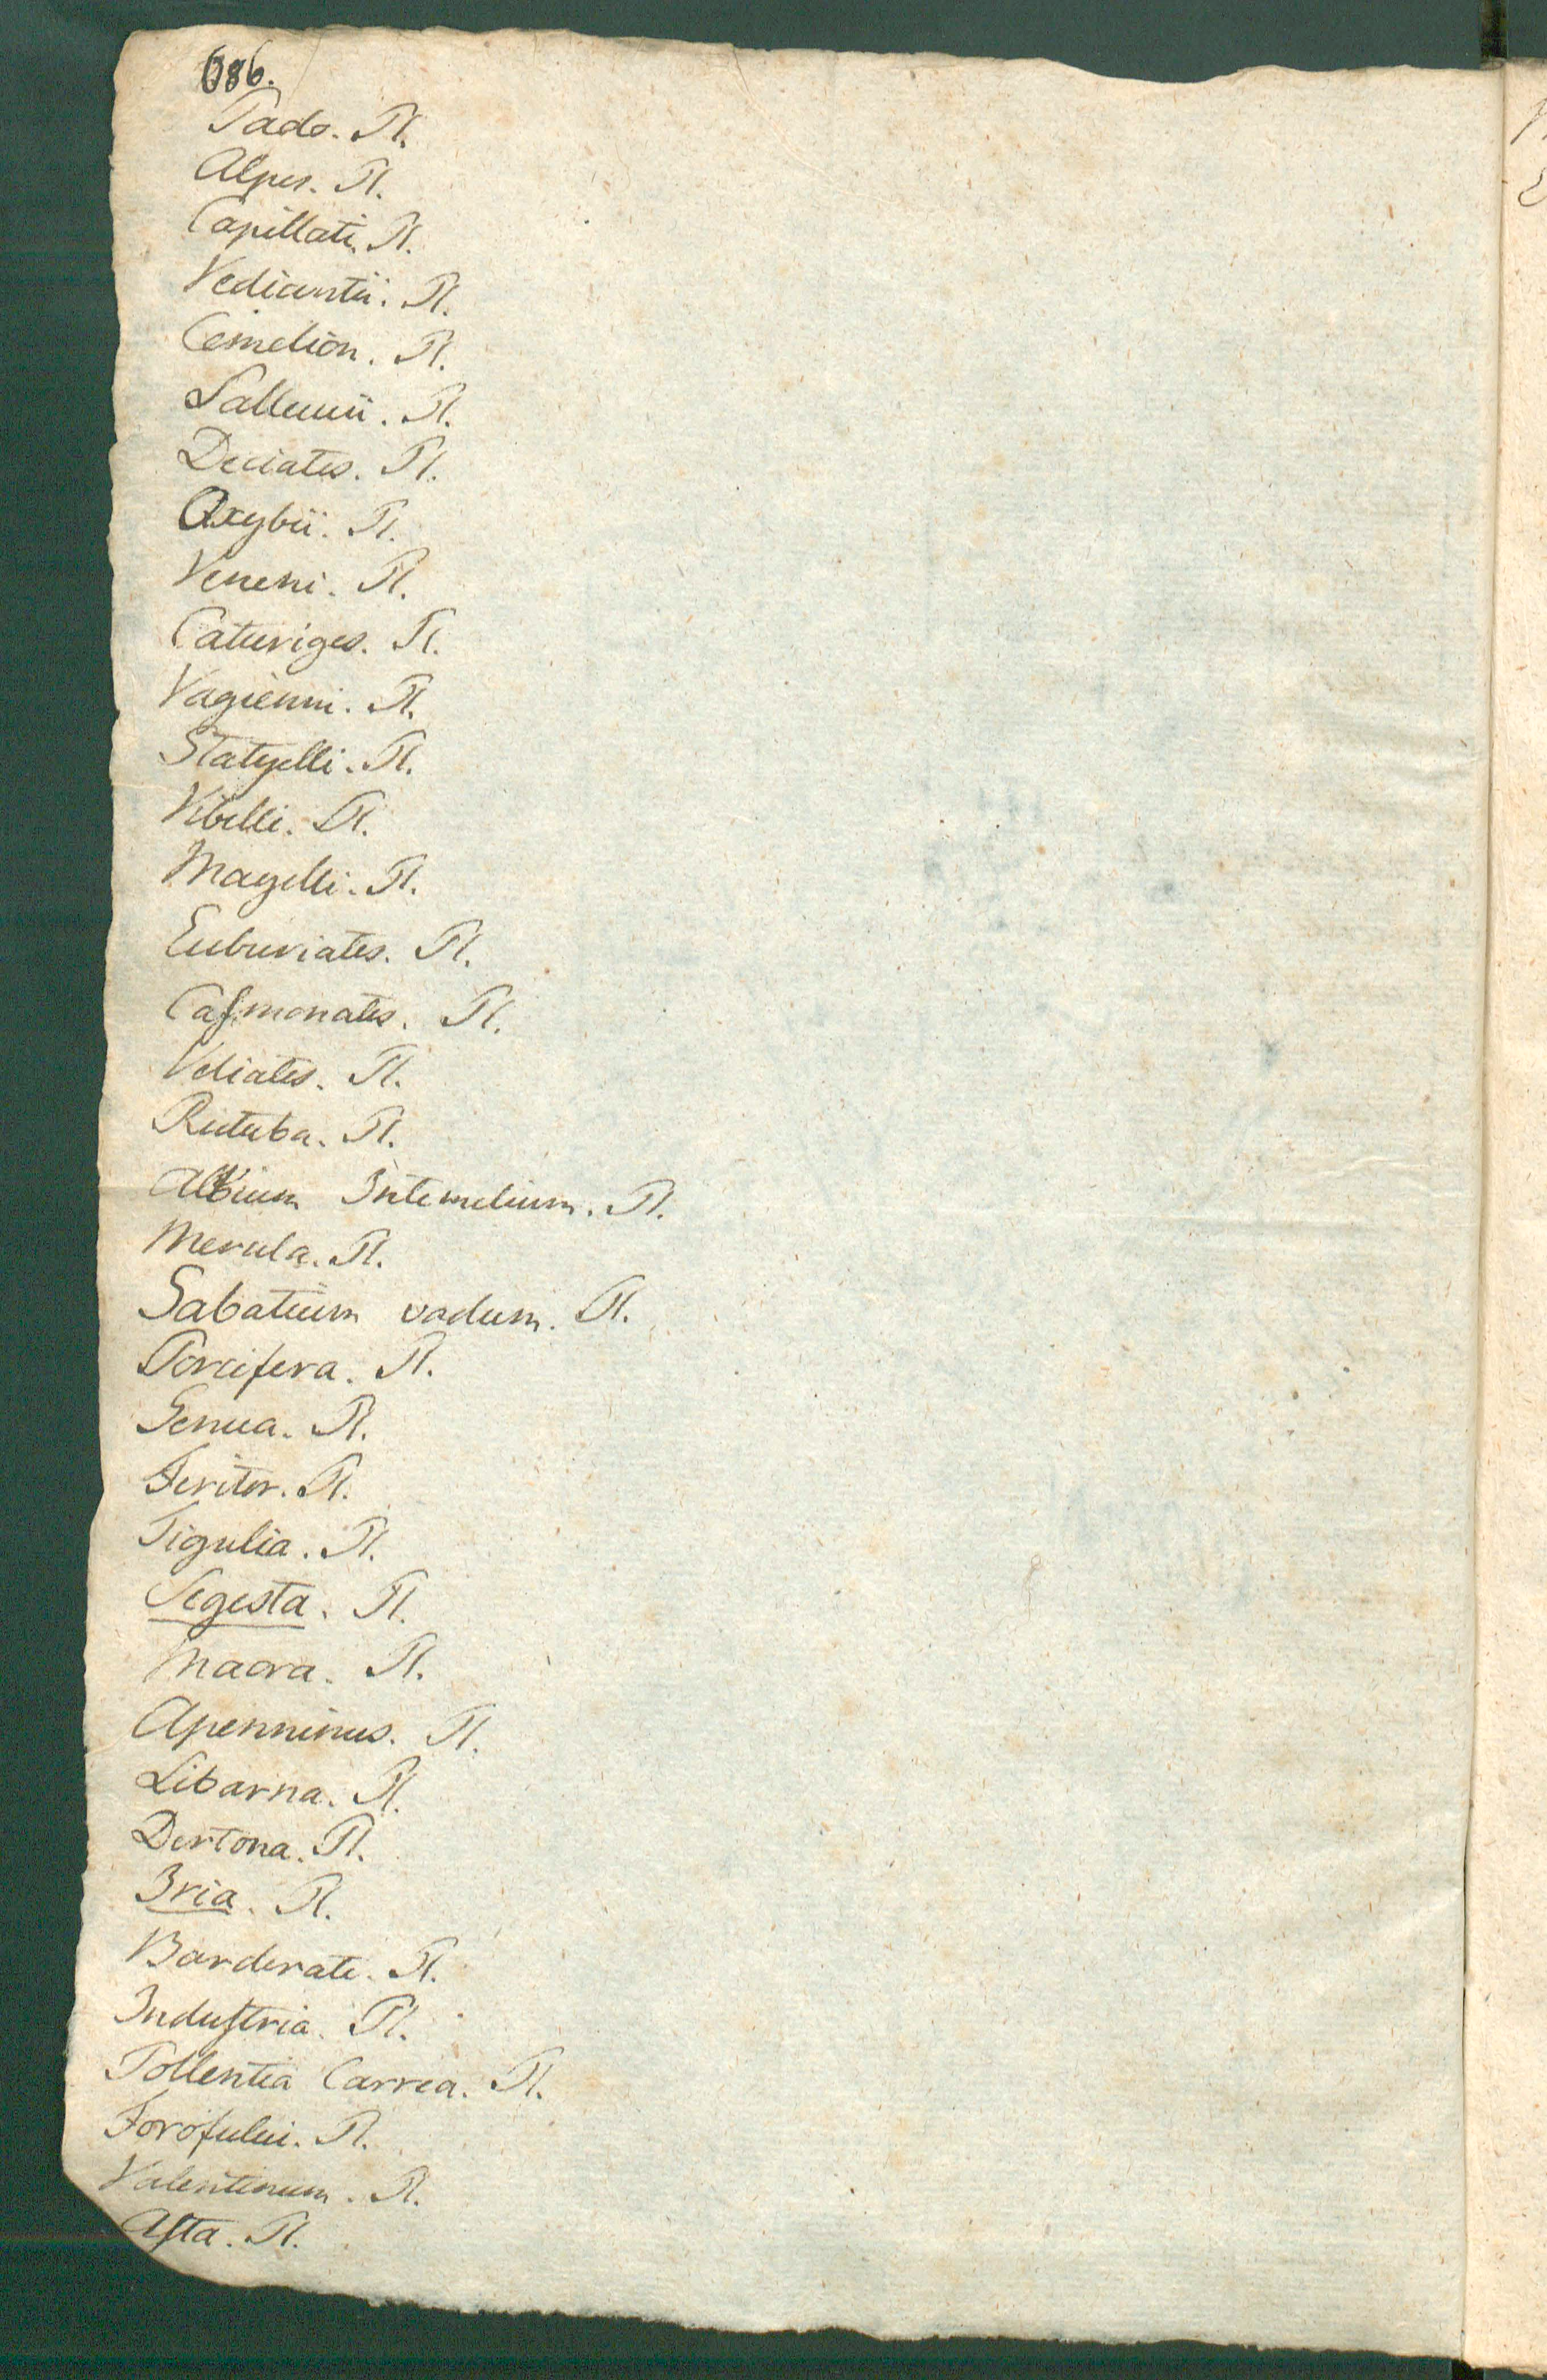 686.
Pado. Pl.
Alpes. Pl.
Capillati. Pl.
Vediantii. Pl.
Cemelion. Pl.
Salluuii. Pl.
Deciates. Pl.
Oxybii. Pl.
Veneni. Pl.
Caturiges. Pl.
Vagienni. Pl.
Statyelli. Pl.
Vibelli. Pl.
Magelli. Pl.
Euburiates. Pl.
Casmonates. Pl.
Veliates. Pl.
Rutuba. Pl.
Albium Intemelium. Pl.
Merula. Pl.
Sabatium vadum. Pl.
Porcifera. Pl.
Genua. Pl.
Feritor. Pl.
Tigulia. Pl.
Segesta. Pl.
Macra. Pl.
Apenninus. Pl.
Libarna. Pl.
Dertona. Pl.
Iria. Pl.
Barderate. Pl.
Industria. Pl.
Pollentia Carrea. Pl.
Forofului. Pl.
Valentinum. Pl.
Asta. Pl.